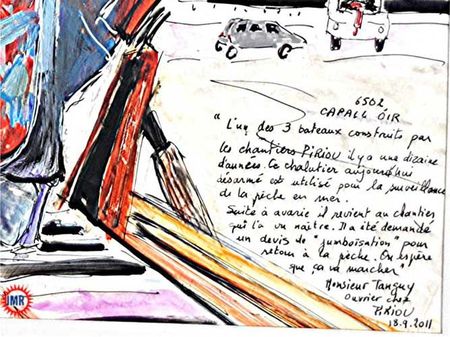 6502
CAPALL ÓIR
"L'un des 3 bateaux construits par
les chantiers PIRIOU il y a une dizaine
d'années. Ce chalutier aujourd'hui
désarmé est utilisé pour la surveillance
de la pêche en mer.
Suite à avarie il revient au chantier
qui l'a vu naître. Il a été demandé
un devis de "jumboisation" pour
retour à la pêche. On espère
que ça va marcher"
Monsieur Tanguy
Ouvrier chez
PIRIOU
18.9.2011
JMR